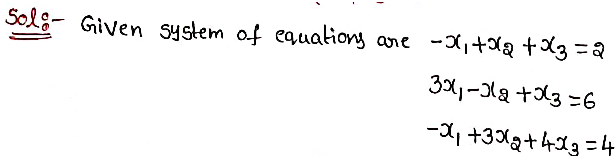 Sol:- Given system of equations are -x₁+x₂+x₃=2
3x₁-x₂+x₃=6
-x₁+3x₂+4x₃=4